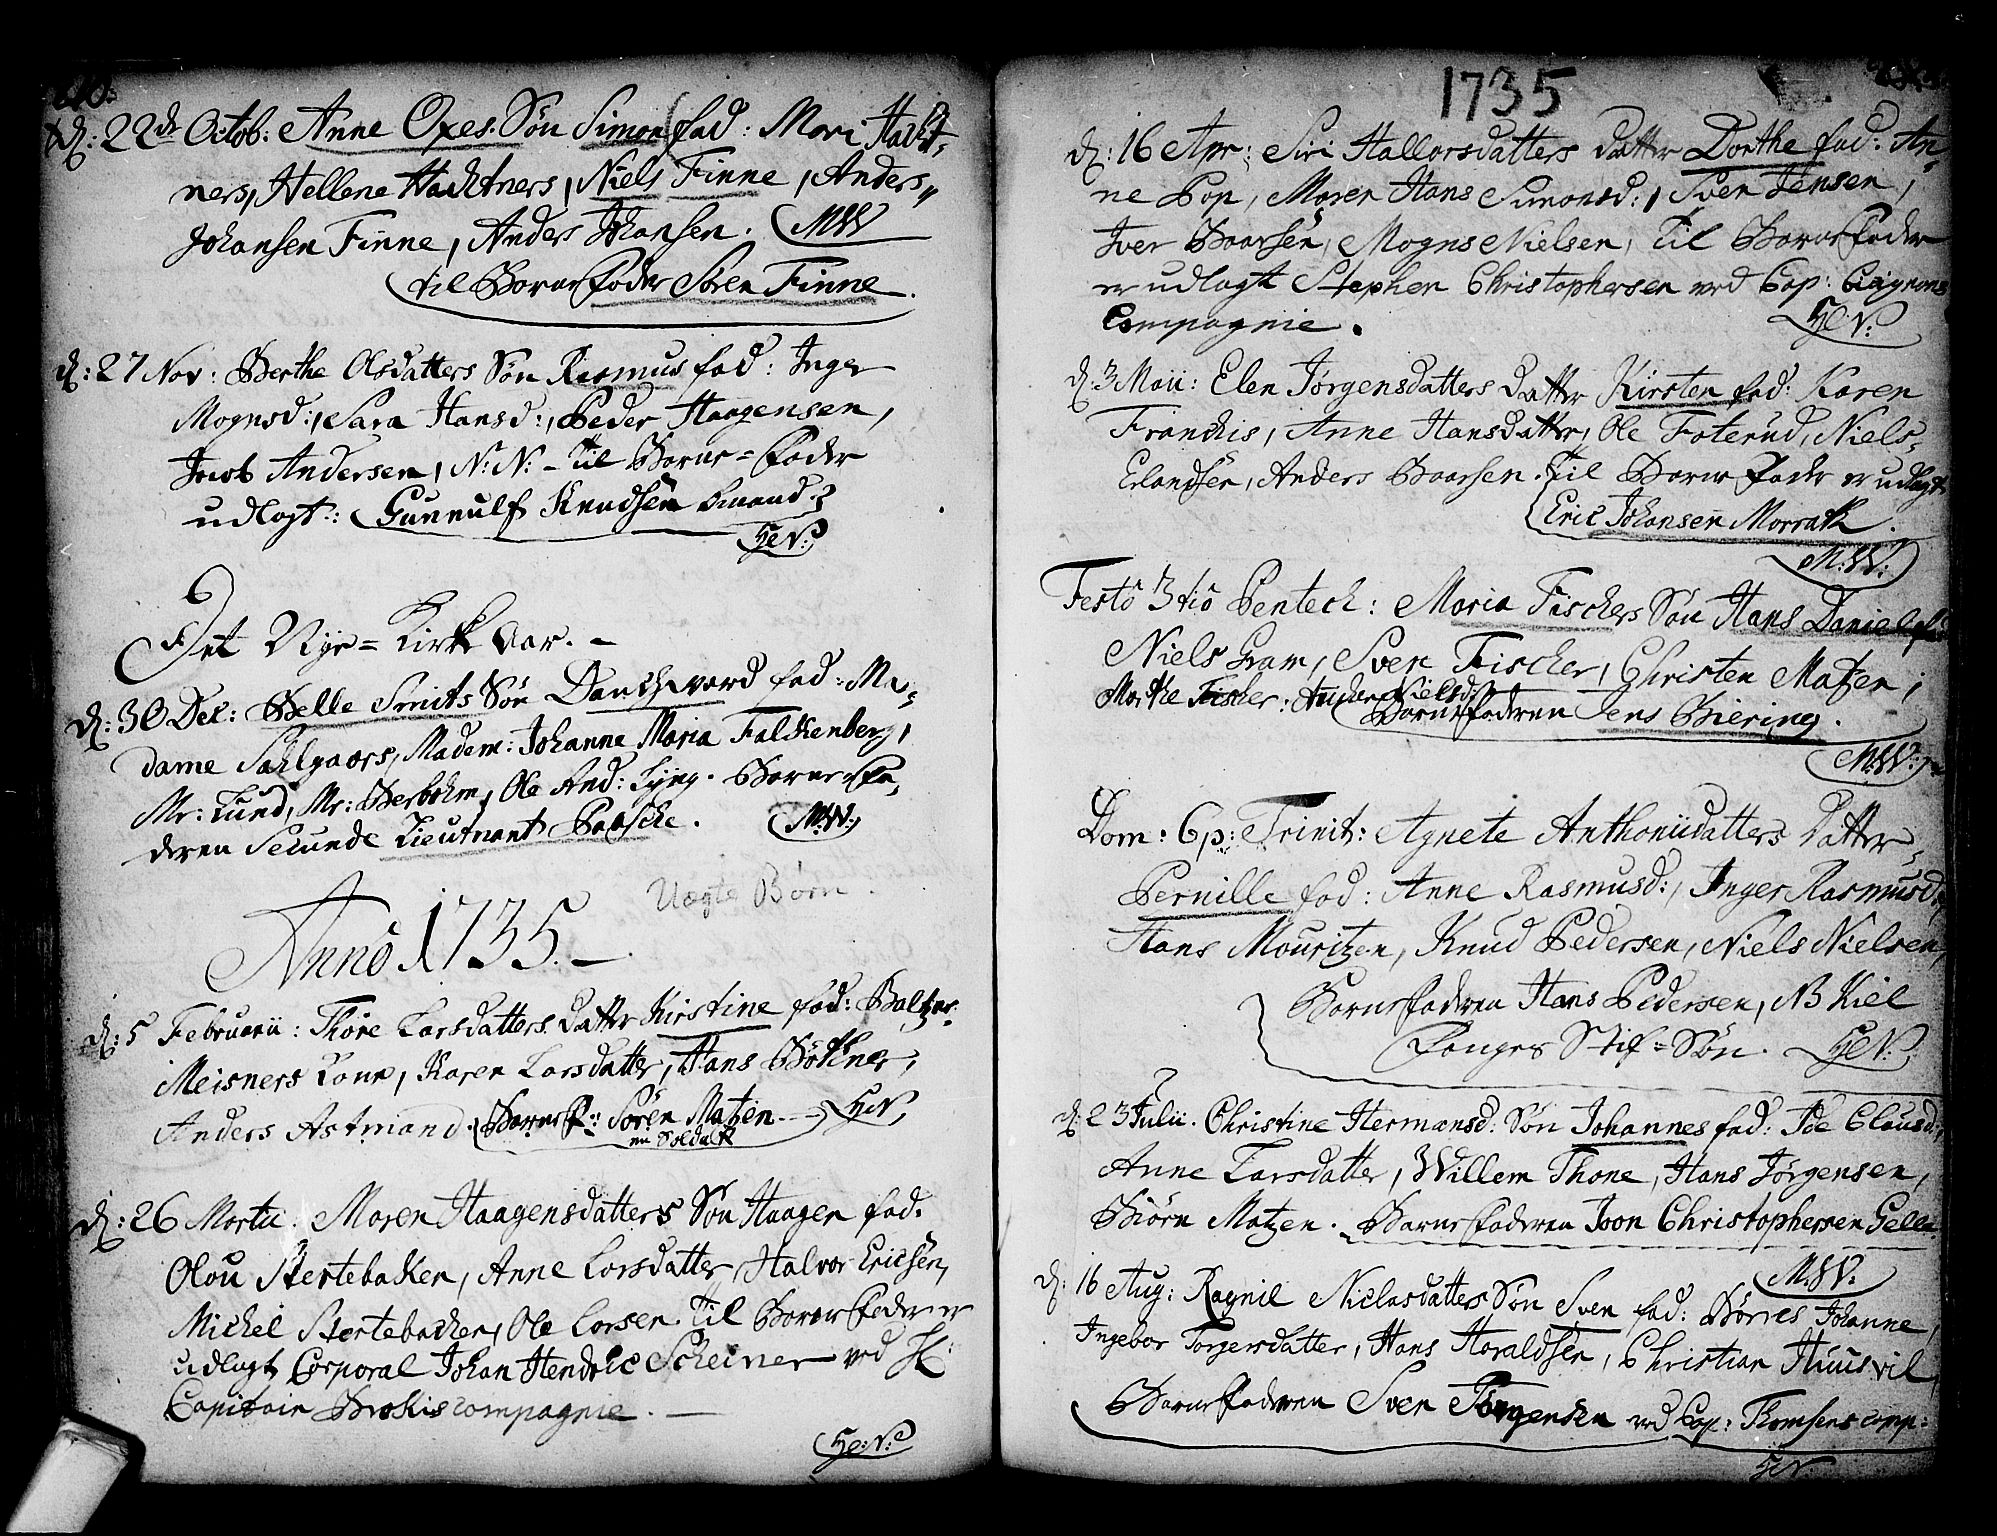 d: 22de Octob: Anne Oxes Søn Simon fad: Mari Hacht-
ners, Hellene Hachtners, Niels Finne, Anders
Johansen Finne, Anders Johansen. MW
til Barne fader Søren Finne.
d: 27 Nov: Berthe Olsdatters Søn Rasmus fad: Inger
Mognsd:, Sara Hansd:, Peder Haagensen,
Jacob Andersen, N: N: - til Barne=fader
udlagt: Gunnulf Knudsen
H:N:
Det Nye=Kirke Aar. -
d: 30 Dec: Belle Smits Søn Danchward fad: Ma-
dame Sahlgaars, Madem: Johanne Maria Falckenberg,
Mr: Lund, Mr: Herbohm, Ole And: Lyng. Barnefa-
deren Secunde Lieutnant Paasche. M:W:
Uægte Børn
Anno 1735. -
d: 5 Februarii: Thore Larsdatters datter Kirstine fad: Baltzer
Meisners Kone, Karen Larsdatter, Hans Bøtkner,
Anders Astmand. Barnef: Søren Matzen H:N:
en Soldat
d: 26 Martii: Maren Haagensdatters Søn Haagen fad.
Olou Stertebaken, Anne Larsdatter, Halvor Ericsen,
Michel Stertebacken, Ole Larsen. Til Barne fader er
udlagt Corporal Johan Hendric Scheiner ved H:
Capitain Brokis compagnie. -
H:N:
1735
d: 16 Apr: Siri Hallorsdatters datter Dorthe fad: An-
ne Pop, Maren Hans Simonsd:, Sven Jensen,
Iver Baarsen, Mogns Nielsen, Til Barne fader
er udlagt Stephen Christophersen ved Cap:
Compagnie. H:N:
d. 3 Maii: Elen Jørgensdatters datter Kirsten fad: Karen
Franckis, Anne Hansdatter, Ole Foterud, Niels
Erlandsen, Anders Baarsen. Til Barne fader er udlagt
Eric Johansen Morrath.
M:W:
Festo 3tio Pentech: Maria Fischers Søn Hans Daniel fad
Niels Gram, Sven Fischer, Christen Matzen,
Marthe Fischer: Nielsd:
Barnefaderen Jens Biering.
M:W:
Dom: 6 p: Trinit: Agnete Anthoniidatters Datter
Pernille fad: Anne Rasmusd:, Inger Rasmusd:
Hans Mouritzen, Knud Pedersen, Niels Nielsen,
Barnefaderen Hans Pedersen, NB Kiel
Fanges Stif=Søn. H:N:
d: 23 Julii. Christine Hermansd: Søn Johannes fad: Ide Clausd:,
Anne Larsdatter, Willem Thone, Hans Jørgensen,
Biørn Matzen. Barnefaderen Joon Christophersen Gelle
M:W:
d: 16 Aug: Ragnil Niclasdatters Søn Sven fad: Børres Johanne,
Ingebor Torgersdatter, Hans Haraldsen, Christian Huusvil,
Barnefaderen Sven Torgensen ved Cap: Thomsens comp:
H:N: